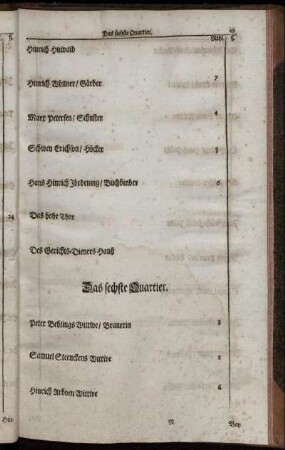 Das sechste Quartier.
Rthl. ß.
Hinrich Huivald
Hinrich Wöllner/ Gärber 7
Marx Petersen/ Schuster 4
Schwen Erichson/ Höcker 3
Hans Hinrich Jördening/ Buchbinder 6
24 Das hohe Thor
Des Gerichts-Dieners Hauß
Das sechste Quartier.
Peter Behlings Wittwe/ 8
Samuel Steenckens Wittwe 2
Hinrich Arboen Wittwe 6
N
Bey